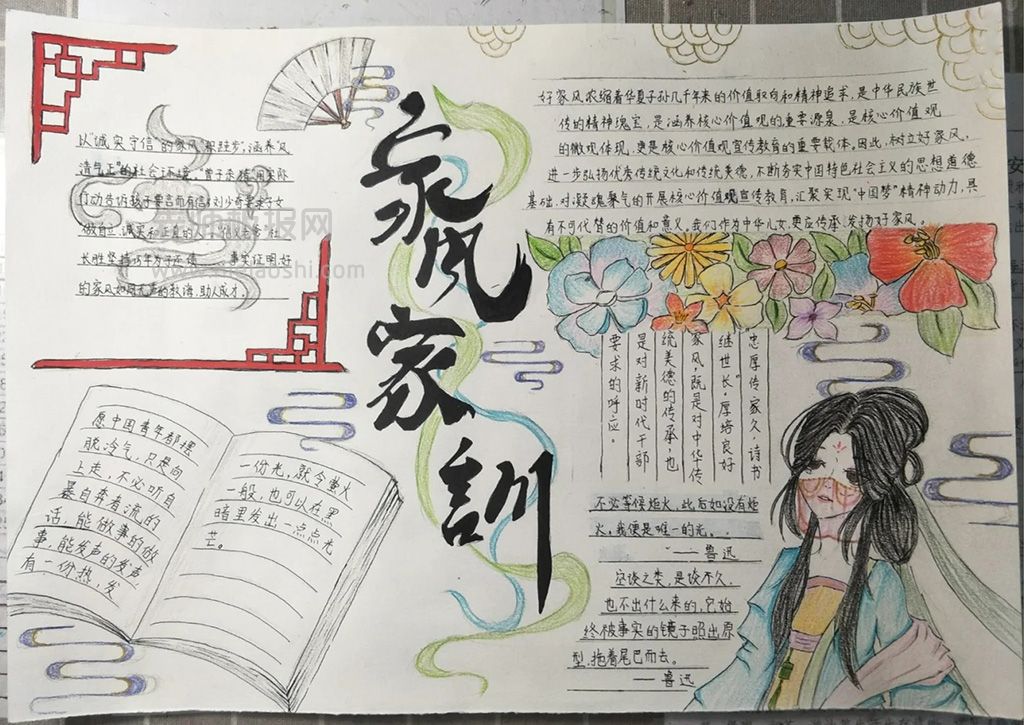 家风家訓
以“诚实守信”的家风“积跬步”,涵养“风
清气正”的社会环境。曾子杀猪,用实际
行动告诉孩子要言而有信;刘少奇要求子女
做自立、诚实和正直的人;
长胜坚持15年为子还债 事实证明,好
的家风如同无声的教诲,助人成才。
好家风浓缩着华夏子孙几千年来的价值取向和精神追求,是中华民族世
传的精神瑰宝,是涵养核心价值观的重要源泉,是核心价值观
的微观体现,更是核心价值观宣传教育的重要载体,因此,树立好家风,
进一步弘扬优秀传统文化和传统美德,不断夯实中国特色社会主义的思想道德
基础,对凝魂聚气的开展核心价值观宣传教育,汇聚实现“中国梦”精神动力,具
有不可代替的价值和意义。我们作为中华儿女,更应传承、发扬好家风。
“忠厚传家久,诗书
继世长”厚培良好
家风,既是对中华传
统美德的传承,也
是对新时代干部
要求的呼应。
愿中国青年都摆
脱冷气,只是向
上走,不必听自
暴自弃者流的
话,能做事的做
事,能发声的发声,
有一份热,发
一份光,就令萤火
一般,也可以在黑
暗里发出一点点光
芒。
不必等候炬火,此后如没有炬
火,我便是唯一的光。
——鲁迅
空谈之类,是谈不久,
也不出什么来的,它始
终被事实的镜子照出原
型,拖着尾巴而去。
——鲁迅